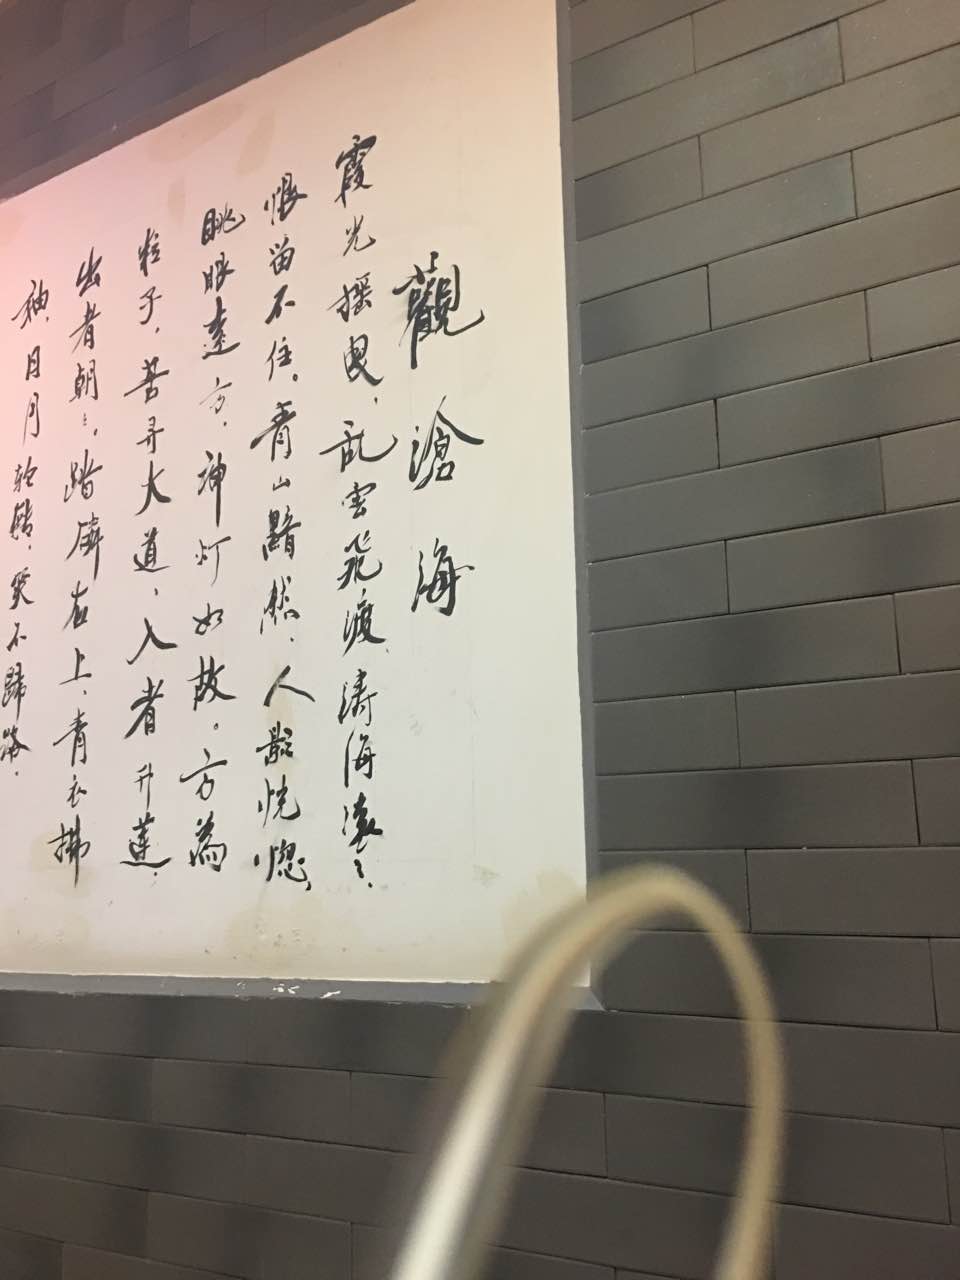 觀滄海
霞光摇曳，乱雲飛渡，涛海滚々，
恨留不住。青山黯然，人影恍惚，
眺眼遠方，神灯如故。方為
粒子，苦寻大道，入者升莲，
出者朝々。踏磷石上，青衣拂
袖，日月轮转，笑不歸路。